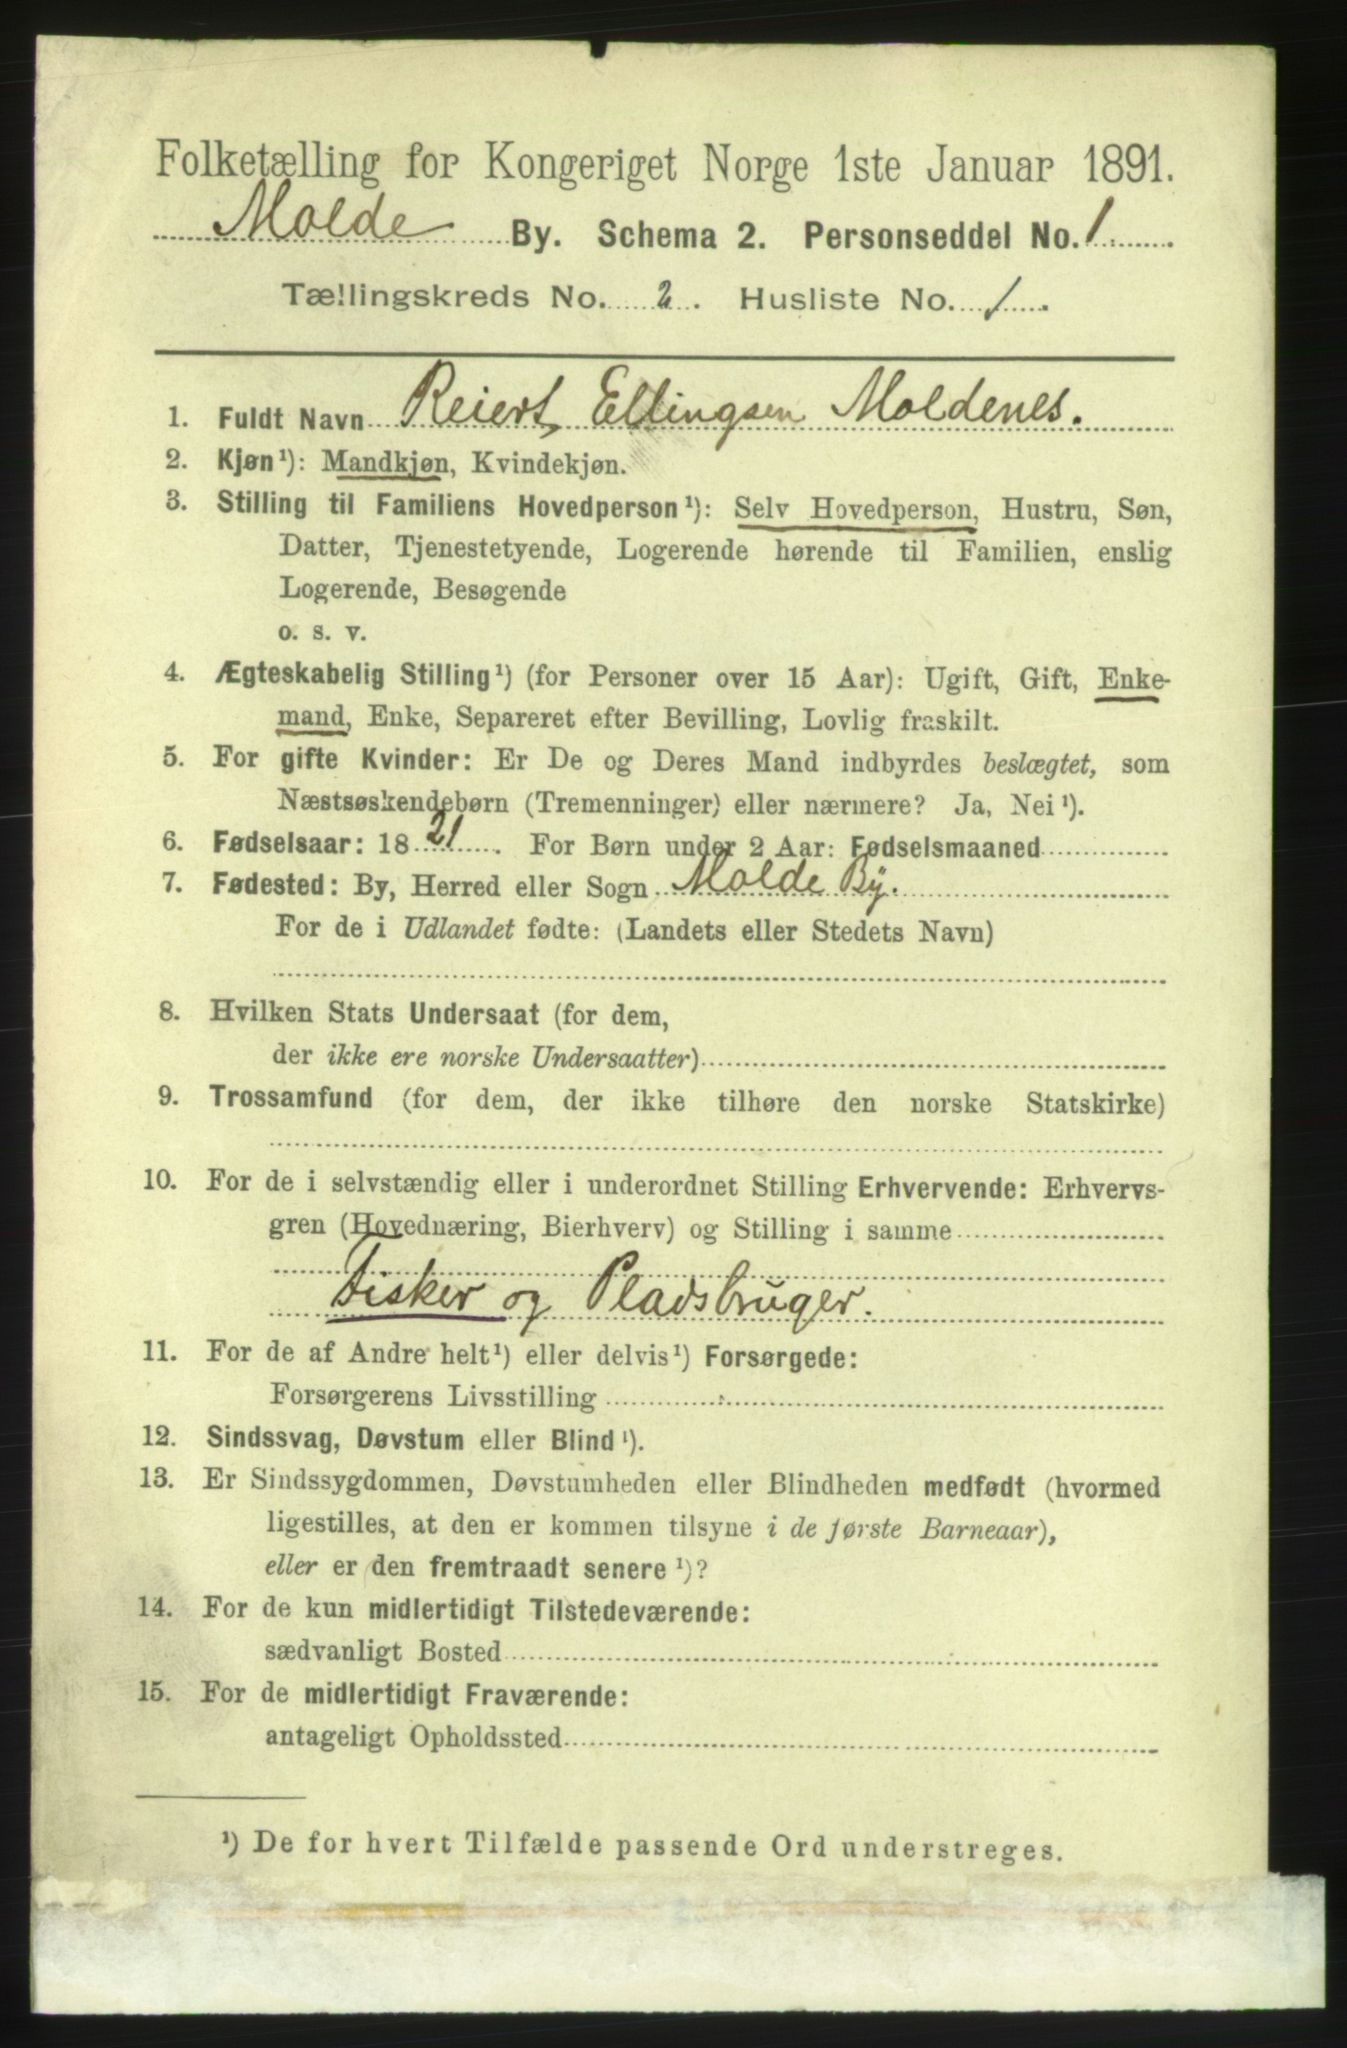 Folketælling for Kongeriget Norge 1ste Januar 1891.
Molde By. Schema 2. Personseddel No. 1.
Tællingskreds No. 2. Husliste No. 1.
1. Fuldt Navn Reiert Ellingsen Moldenes.
2. Kjøn¹): Mandkjøn, Kvindekjøn.
3. Stilling til Familiens Hovedperson¹): Selv Hovedperson, Hustru, Søn,
Datter, Tjenestetyende, Logerende hørende til Familien, enslig
Logerende, Besøgende
o. s. v.
4. Ægteskabelig Stilling¹) (for Personer over 15 Aar): Ugift, Gift, Enke-
mand, Enke, Separeret efter Bevilling, Lovlig fraskilt.
5. For gifte Kvinder: Er De og Deres Mand indbyrdes beslægtet, som
Næstsøskendebørn (Tremenninger) eller nærmere? Ja, Nei¹).
6. Fødselsaar: 1821. For Børn under 2 Aar: Fødselsmaaned
7. Fødested: By, Herred eller Sogn Molde By.
For de i Udlandet fødte: (Landets eller Stedets Navn)
8. Hvilken Stats Undersaat (for dem,
der ikke ere norske Undersaatter)
9. Trossamfund (for dem, der ikke tilhøre den norske Statskirke)
10. For de i selvstændig eller i underordnet Stilling Erhvervende: Erhvervs-
gren (Hovednæring, Bierhverv) og Stilling i samme
Fisker og Pladsbruger.
11. For de af Andre helt¹) eller delvis¹) Forsørgede:
Forsørgerens Livsstilling
12. Sindssvag, Døvstum eller Blind¹).
13. Er Sindssygdommen, Døvstumheden eller Blindheden medfødt (hvormed
ligestilles, at den er kommen tilsyne i de første Barneaar),
eller er den fremtraadt senere¹)?
14. For de kun midlertidigt Tilstedeværende:
sædvanligt Bosted
15. For de midlertidigt Fraværende:
antageligt Opholdssted
¹) De for hvert Tilfælde passende Ord understreges.